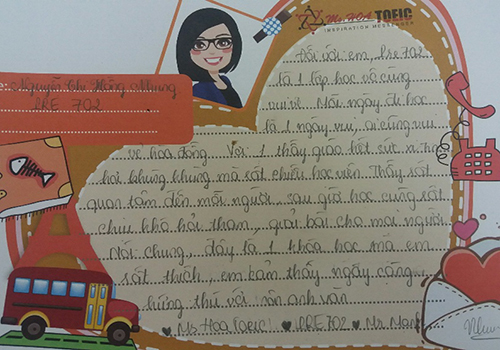 Ms HOA TOEIC
INSPIRATION MESSENGER
Nguyễn Thị Hồng Nhung
PRE 702
Đối với em, Pre 702
là 1 lớp học vô cùng
vui vẻ. Mỗi ngày đi học
là 1 ngày vui, ai cũng vui
vẻ hoà đồng. Với 1 thầy giáo hết sức
hơi khùng khùng mà rất chiều học viên. Thầy rất
quan tâm đến mỗi người, sau giờ học cũng rất
chịu khó hỏi thăm, giải bài cho mọi người.
Nói chung, đây là 1 khóa học mà em
rất thích, em cảm thấy ngày càng
hứng thú với môn anh văn
♥ Ms Hoa Toeic! ♥ PRE 702 ♥ Mr.
Nhung